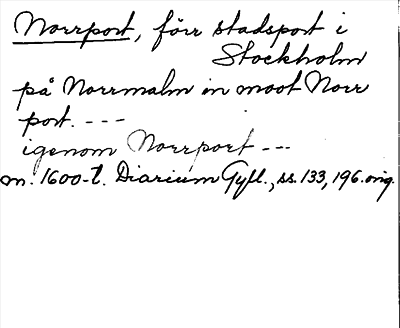 Norrport, förr stadsport i
Stockholm
på Norrmalm in moot Norr
port. ---
igenom Norrport ---
m. 1600-t. Diarium Gyll., ss. 133, 196. orig.